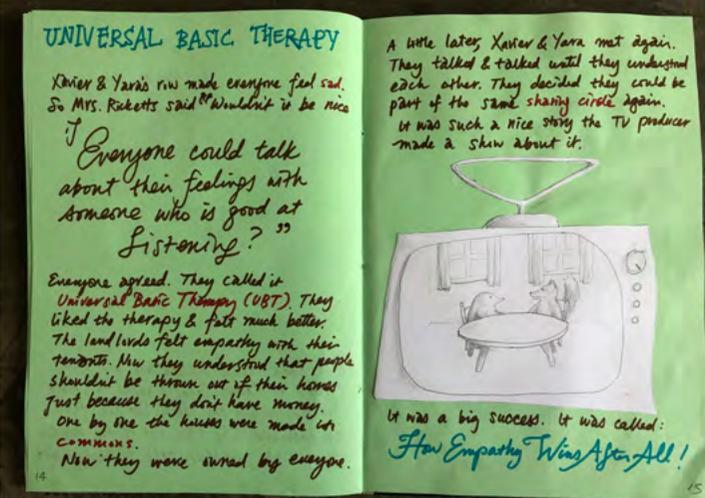 UNIVERSAL BASIC THERAPY
Xavier & Yara's row made everyone feel sad.
So Mrs. Ricketts said "Wouldn't it be nice
if
Everyone could talk
about their feelings with
someone who is good at
Listening?"
Everyone agreed. They called it
Universal Basic Therapy (UBT). They
liked the therapy & felt much better.
The landlords felt empathy with their
tenants. Now they understood that people
shouldn't be thrown out of their homes
just because they don't have money.
One by one the houses were made into
commons.
Now they were owned by everyone.
14
A little later, Xavier & Yara met again.
They talked & talked until they understood
each other. They decided they could be
part of the same sharing circle again.
It was such a nice story the TV producer
made a show about it.
It was a big success. It was called:
How Empathy Wins After All!
15